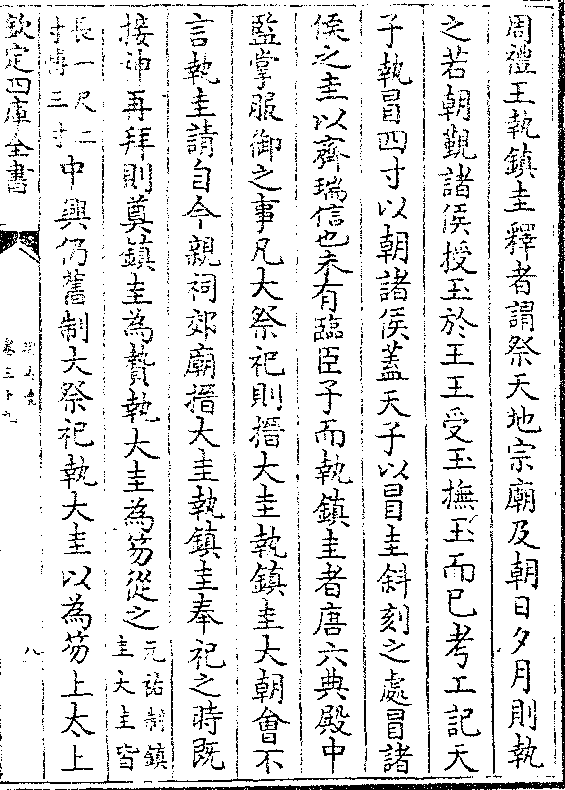 周禮王執鎮圭釋者謂祭天地宗廟及朝日夕月則執
之若朝覲諸侯授玉於王王受玉撫玉而已考工記天
子執冒四寸以朝諸侯蓋天子以冒圭斜刻之處冒諸
侯之圭以齊瑞信也未有臨臣子而執鎮圭者唐六典殿中
監掌服御之事凡大祭祀則搢大圭執鎮圭大朝會不
言執圭請自今親祠郊廟搢大圭執鎮圭奉祀之時既
接神再拜則奠鎮圭為贄執大圭為笏從之元祐制鎮
圭大圭皆
長一尺二
寸博三寸中興仍舊制大祭祀執大圭以為笏上太上
欽定四庫全書
卷三十九
八